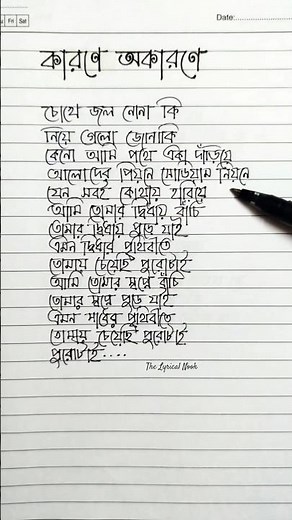 Fri Sat
Date:
কারণে অকারণে
চোখে জল নোনা কি
নিয়ে গেলো জোনাকি
কেনো আমি পথে একা দাঁড়িয়ে
আলোদের পিয়নে সোডিয়াম নিয়নে
যেন সবই কোথায় হারিয়ে
আমি তোমার দ্বিধায় বাঁচি
তোমার দ্বিধায় পুড়ে যাই
এমন দ্বিধার পৃথিবীতে
তোমায় চেয়েছি পুরোটাই
আমি তোমার স্বপ্নে বাঁচি
তোমার স্বপ্নে পুড়ে যাই
এমন সাধের পৃথিবীতে
তোমায় চেয়েছি পুরোটাই
পুরোটাই....
The Lyrical Nook